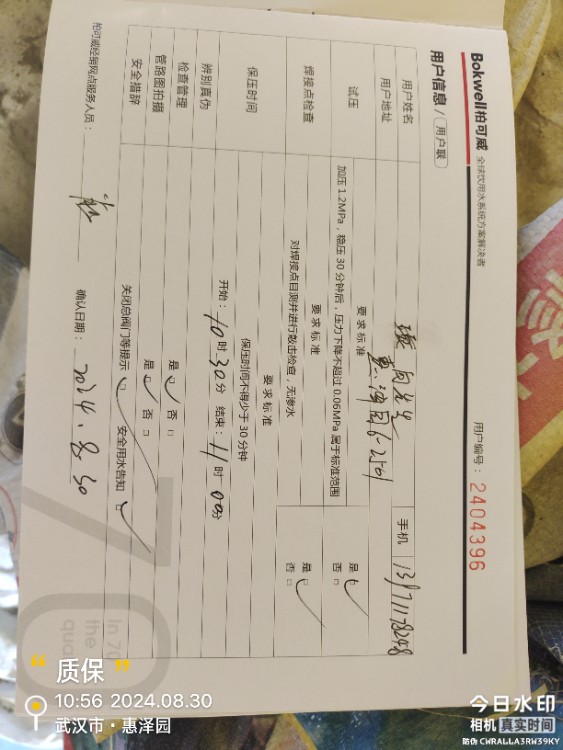 Bokwell柏可威 全球饮用水系统方案解决者
用户编号：2404396
用户信息 / 用户联
用户姓名
手机
用户地址 惠泽园6-2-161
试压
要求标准
加压 1.2MPa，稳压 30 分钟后，压力下降不超过 0.06MPa 属于标准范围
是 □ 否 □
焊接点检查
要求标准
对焊接点目测并进行敲击检查，无渗水
是 □ 否 □
保压时间
要求标准
保压时间不得少于 30 分钟
开始：10 时 30 分 结束：11 时 00 分
辨别真伪
是 □ 否 □
检查管理
管路图拍摄
是 □ 否 □
安全措辞
关闭总阀门等提示 □ 安全用水告知 □
柏可威经销网点服务人员：
确认日期：2024.8.30
In 70
the
qua
70
“ 质保 ”
10:56 2024.08.30
武汉市·惠泽园
今日水印
相机 真实时间
防伪 CWRALLA3RW39KY